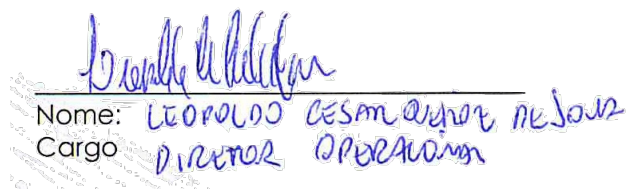 Nome: LEOPOLDO CESAR DE SOUZA
Cargo DIRETOR OPERACIONAL